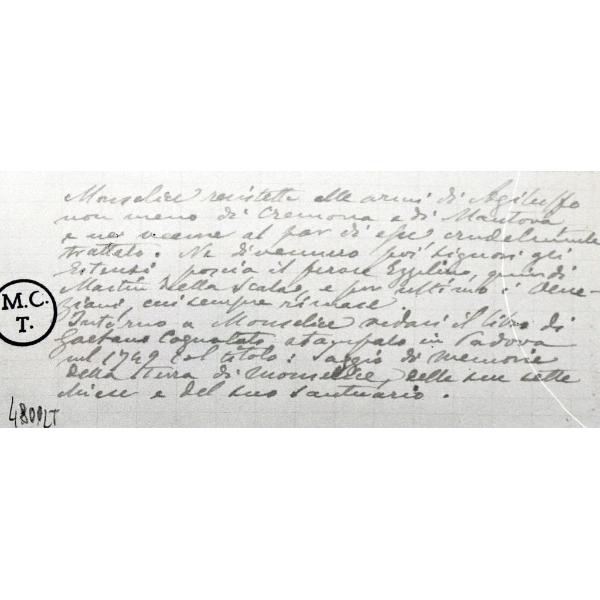 Monselice resistette alle armi di Agilulfo
non meno di Cremona e di Mantova
e ne venne al par di esse crudelmente
trattato. Ne divennero poi signori gli
Estensi poscia il feroce Ezzelino, quindi
Mastin della Scala, e per ultimo i Vene-
ziani, cui sempre rimase
Intorno a Monselice vedasi il libro di
Gaetano Cognolato stampato in Padova
nel 1749 col titolo: Saggio di Memorie
della terra di Monselice, delle sue sette
chiese e del suo santuario.
M.C.
T.